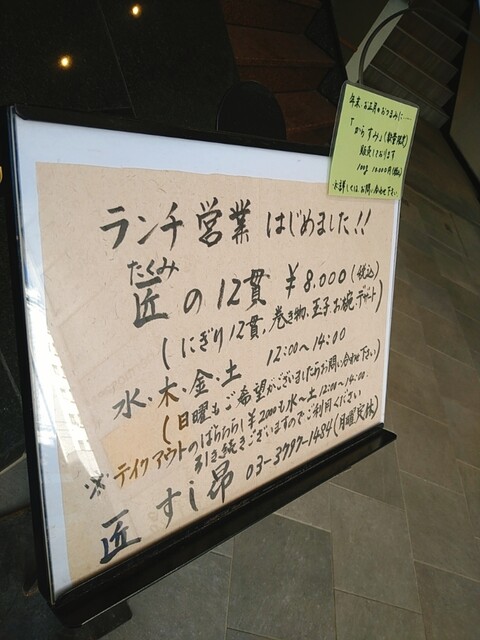 年末、お正月のおつまみに……
「からすみ」(数量限定)
販売しております
100g 10,000円(税込)
・詳しくはお問い合わせ下さい
ランチ営業 はじめました!!
たくみ
匠の12貫 ¥8,000(税込)
(にぎり12貫、巻き物、玉子、お椀、デザート)
水・木・金・土 12:00〜14:00
(日曜もご希望がございましたらお問い合わせ下さい)
※テイクアウトのばらちらし¥2000も水〜土 12:00〜14:00
引き続きございますのでご利用ください
匠 すし昴 03-3797-1484(月曜定休)